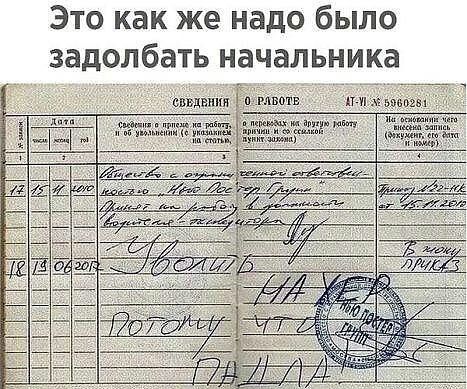 Это как же надо было
задолбать начальника
СВЕДЕНИЯ О РАБОТЕ АТ-VI № 5960281
№ записи
Дата
число
месяц
год
Сведения о приеме на работу, о переводах на другую работу
и об увольнении (с указанием причин и со ссылкой
на статью, пункт закона)
На основании чего
внесена запись
(документ, его дата
и номер)
1 2 3 4
Общество с ограниченной ответствен-
17 15 11 2010 ностью „Нью Постер Групп" Приказ
Принят на работу в должности от 15.11.2010
водителя-экспедитора
18 19 06 2012 Уволить В жопу
ПРИКАЗ
НА ХЕР
ПОТОМУ ЧТО
ПАДЛА
НЬЮ ПОСТЕР
ГРУПП